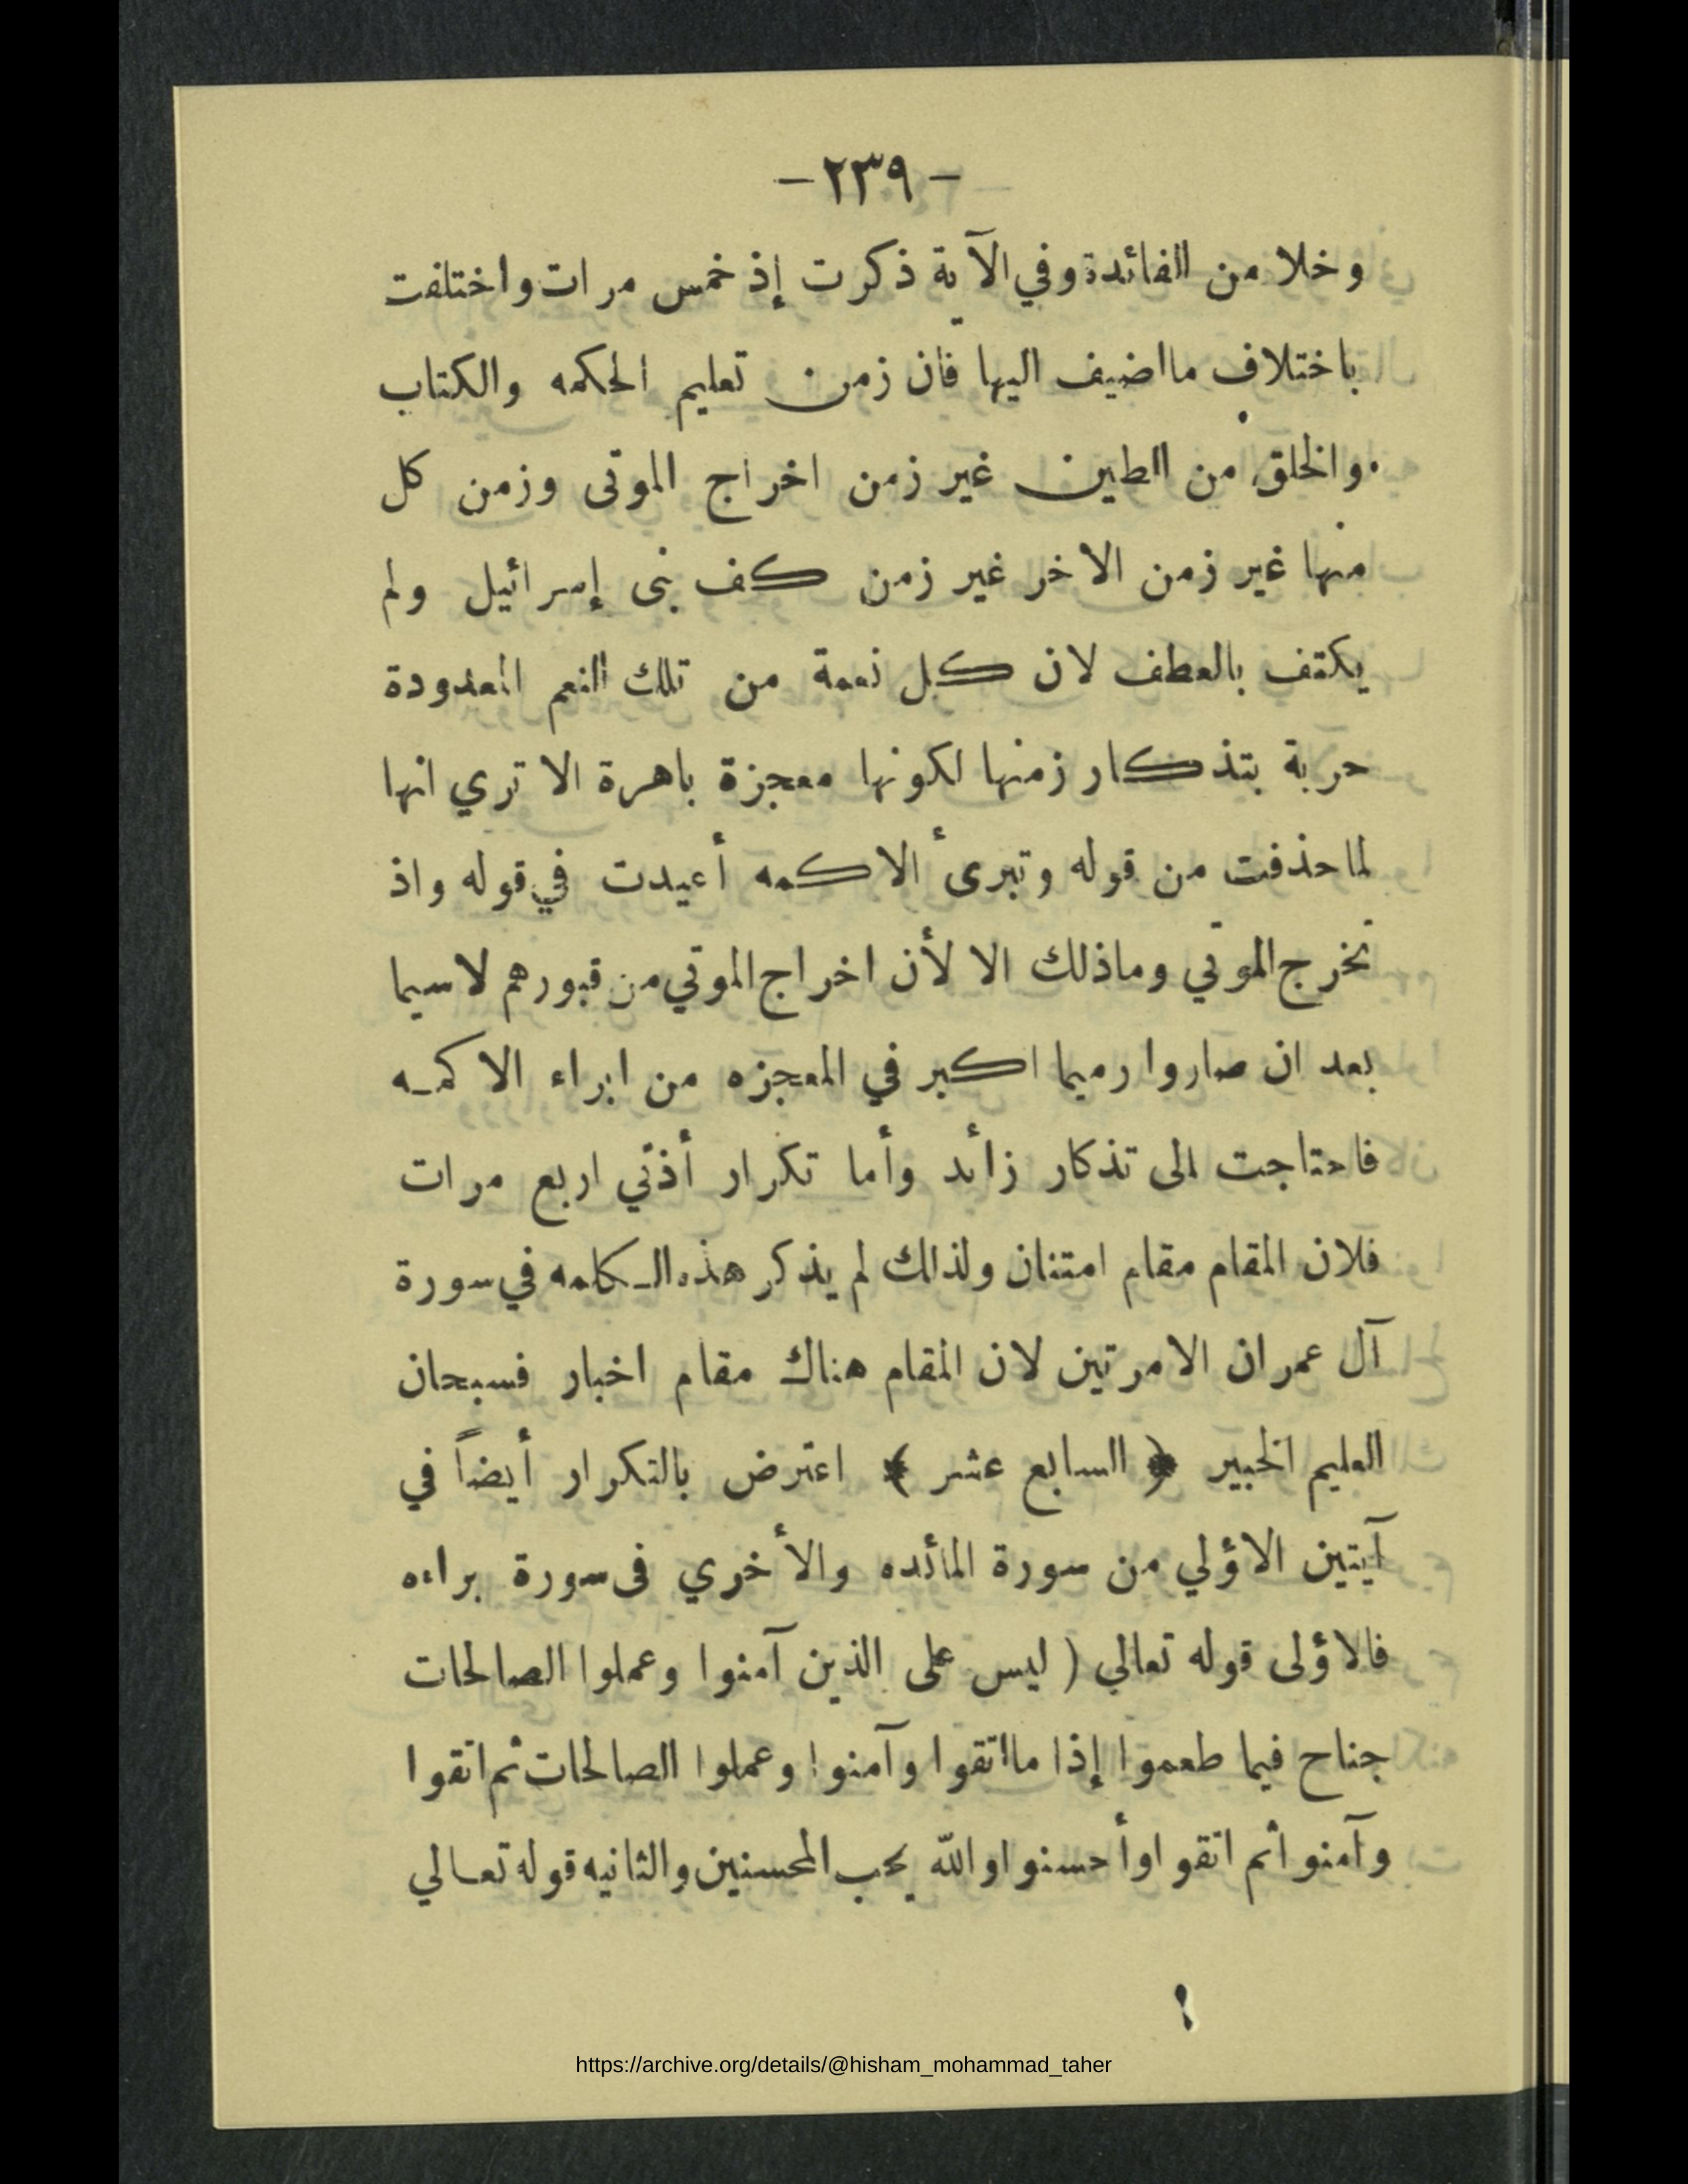 -٢٣٩-
وخلا من الفائدة وفي الآية ذكرت إذ خمس مرات واختلفت
باختلاف ما اضيف اليها فان زمن تعليم الحكمه والكتاب
والخلق من الطين غير زمن اخراج الموتى وزمن كل
منها غير زمن الاخر غير زمن كف بنى إسرائيل ولم
يكتف بالعطف لان كل نعمة من تلك النعم المعدودة
حرية بتذكار زمنها لكونها معجزة باهرة الا تري انها
لما حذفت من قوله وتبرىء الاكمه أعيدت في قوله واذ
تخرج الموتي وماذلك الا لأن اخراج الموتي من قبورهم لاسيما
بعد ان صاروا رميما اكبر في المعجزه من ابراء الاكمه
فاحتاجت الى تذكار زائد وأما تكرار أذني اربع مرات
فلان المقام مقام امتنان ولذالك لم يذكر هذه الكلمه في سورة
آل عمران الامرتين لان المقام هناك مقام اخبار فسبحان
العليم الخبير ﴿ السابع عشر ﴾ اعترض بالتكرار أيضاً في
آيتين الاؤلي من سورة المائده والأخري فى سورة براءه
فالاؤلى قوله تعالي ( ليس على الذين آمنوا وعملوا الصالحات
جناح فيما طعموا إذا مااتقوا وآمنوا وعملوا الصالحات ثم اتقوا
وآمنوا ثم اتقوا وأحسنوا والله يحب المحسنين والثانيه قوله تعالي
https://archive.org/details/@hisham_mohammad_taher